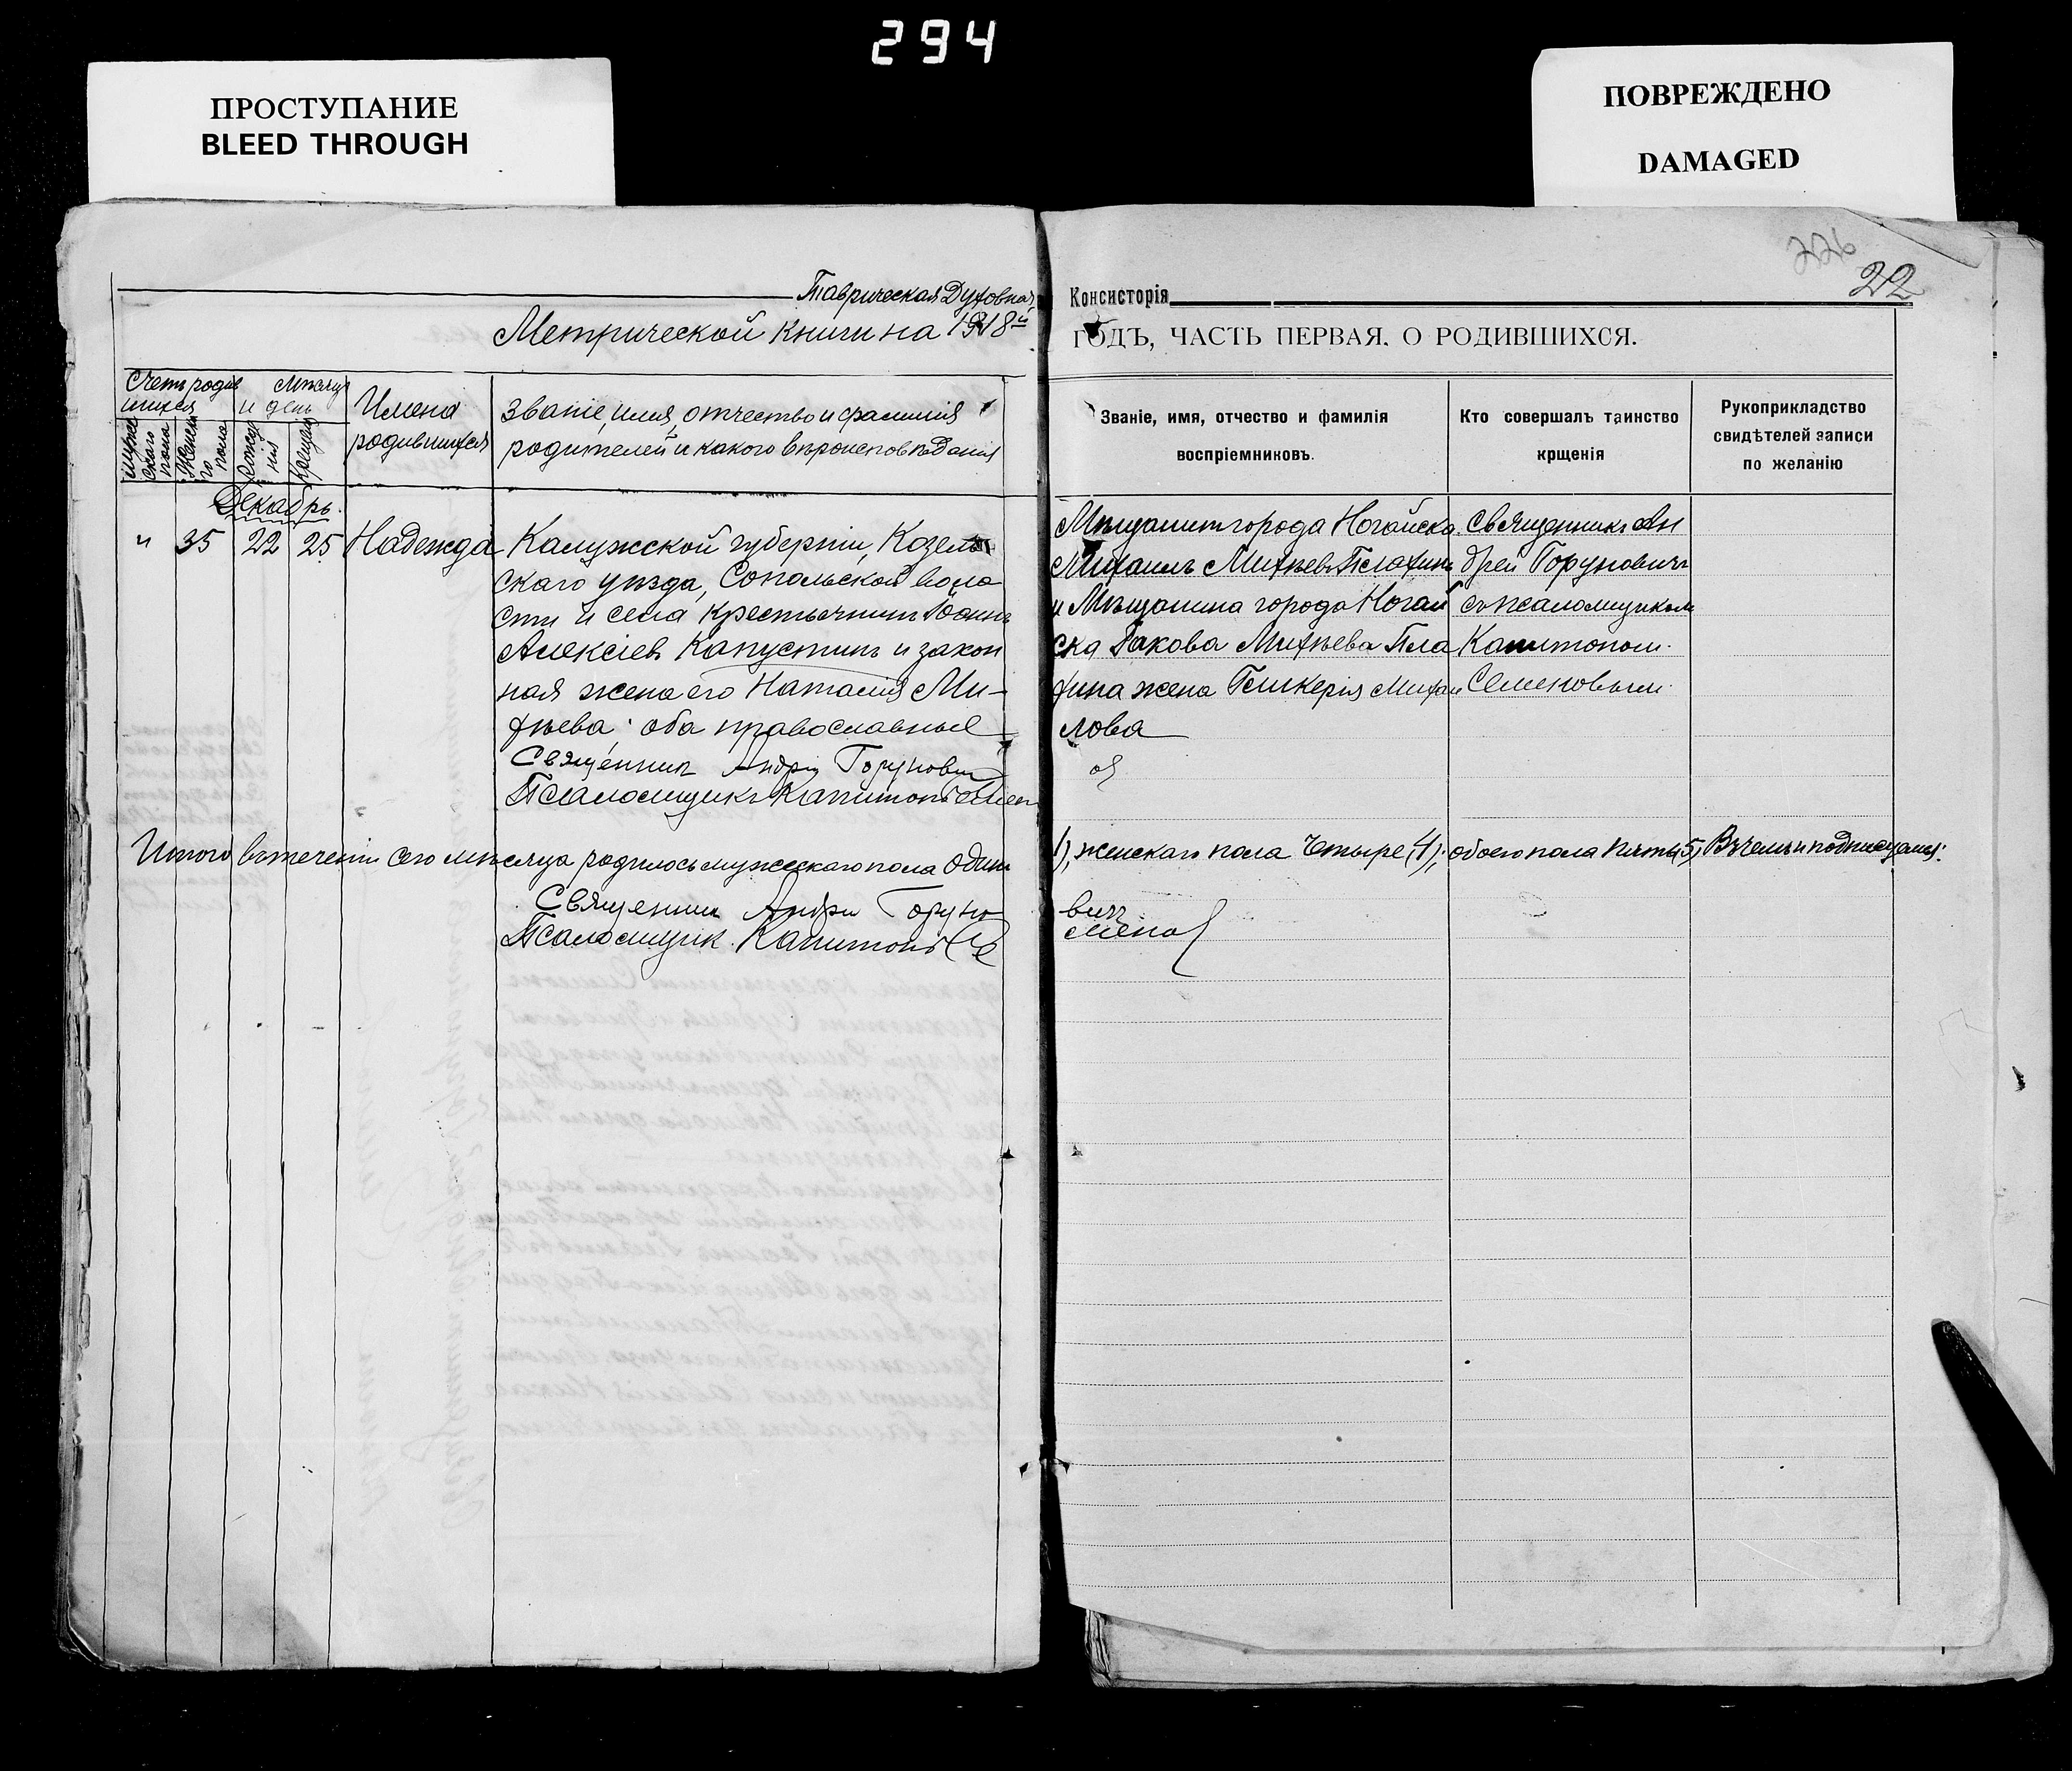 294
ПРОСТУПАНИЕ
BLEED THROUGH
ПОВРЕЖДЕНО
DAMAGED
226
22
Таврическая Духовная Консисторія
Метрической книги на 1918й ГОДЪ, ЧАСТЬ ПЕРВАЯ. О РОДИВШИХСЯ.
Счетъ родив
шихся
Мужес
скаго
пола
Женска
го
пола
Мѣсяцъ
и день
Рожде
нія
Крещен
Имена
родившихся
Званіе, имя, отчество и фамилія
родителей и какого вѣроисповѣданія
Званіе, имя, отчество и фамилія
воспріемниковъ.
Кто совершалъ таинство
крщенія
Рукоприкладство
свидѣтелей записи
по желанію
Декабрь.
" 35 22 25 Надежда
Калужской губерніи, Козель
скаго уѣзда, Сопольской воло
сти и села крестьянинъ Іоаннъ
Алексіевъ Капустинъ и закон
ная жена его Наталія Ми-
хѣева оба православные
Священник Андрей Горунович
Псаломщикъ Капитонъ Семен
Мѣщанинъ города Ногайска
Михаилъ Михѣевъ Плахинъ
и Мѣщанина города Ногай
ска Іакова Михѣева Пла
хина жена Гликерія Михаи
лова
ов
Священникъ Ан
дрей Горуновичъ
съ псаломщиком
Капитоном
Семеновым
Итого въ теченіи сего мѣсяца родилось мужескаго пола один (1), женскаго пола четыре (4); обоего пола пять (5) Въ чемъ и подписуемся:
Священник Андрей Горуно
вич
Псаломщик Капитонъ Се
менов